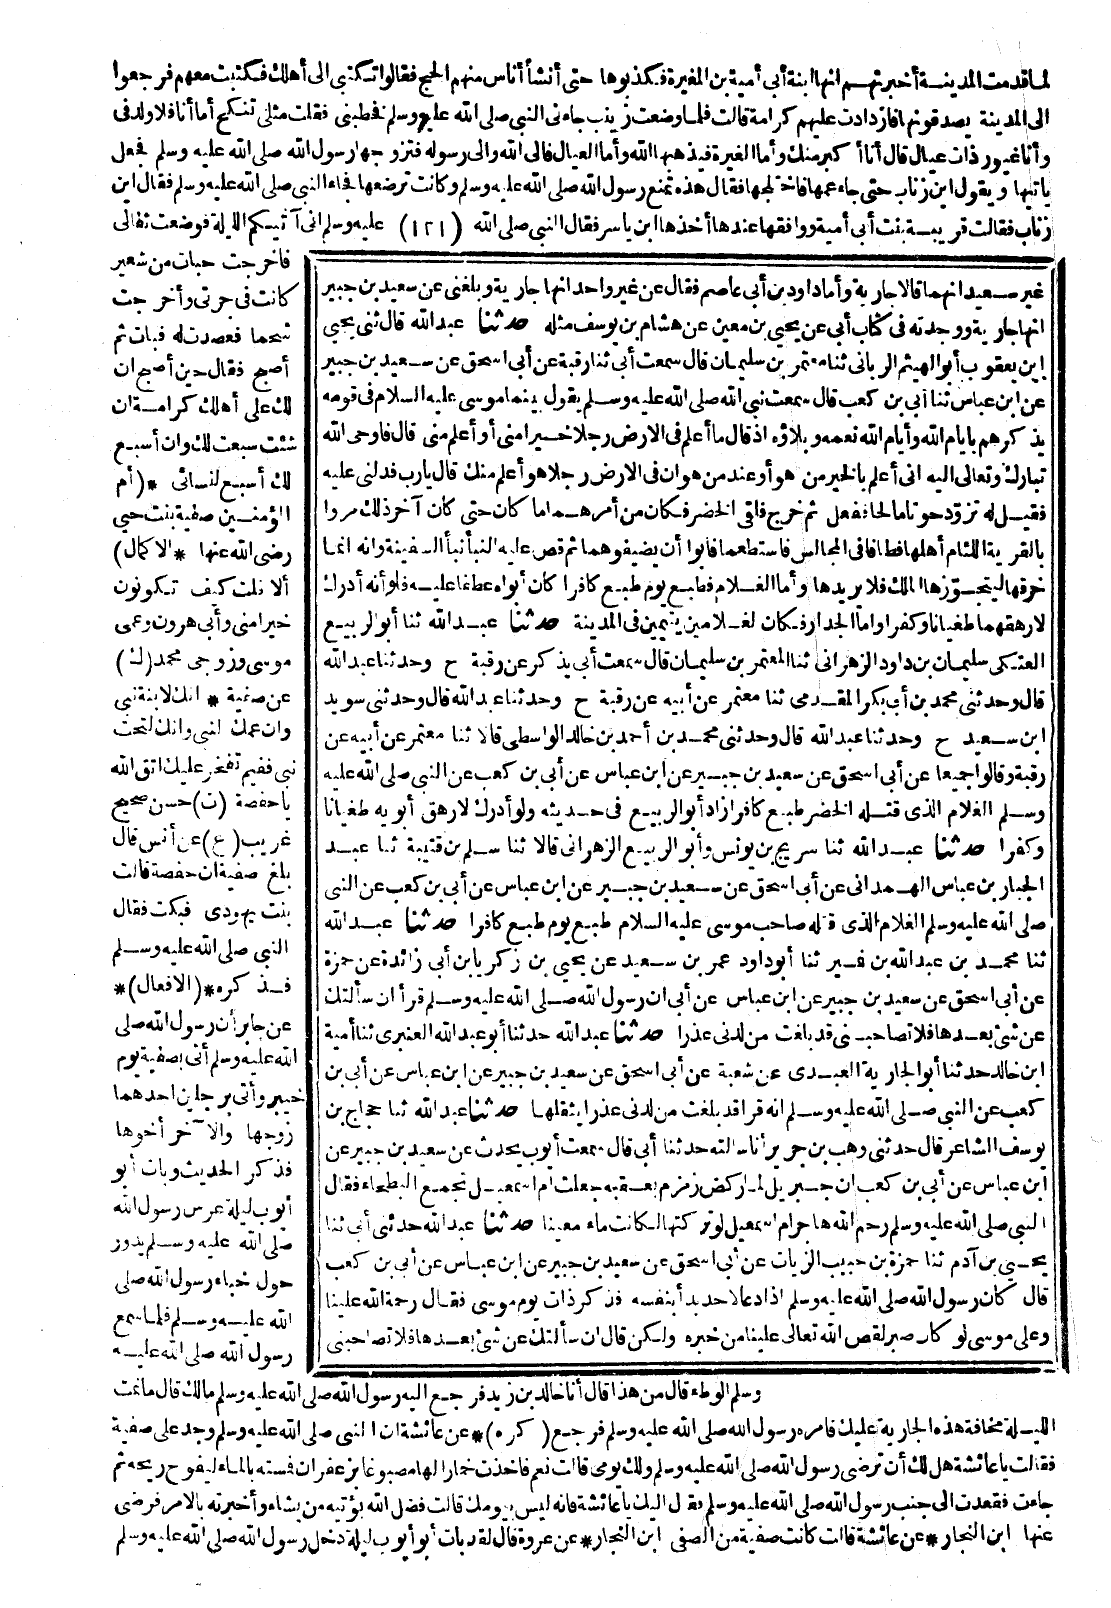 لما قدمت المدينة أخبرتهم انها ابنة أبي أمية بن المغيرة فكذبوها حتى أنشأ أناس منهم الحج فقالوا تكتبي الى أهلك فكتبت معهم فرجعوا
الى المدينة يصدقونها فازدادت عليهم كرامة قالت فلما وضعت زينب جاءني النبي صلى الله عليه وسلم فخطبني فقلت مثلي تنكح أما أنا فلا ولد في
وأنا غيور ذات عيال قال أنا أكبر منك وأما الغيرة فيذهبها الله وأما العيال فالى الله والى رسوله فتزوجها رسول الله صلى الله عليه وسلم فجعل
يأتيها ويقول اين زناب حتى جاء عمها فاختلجها فقال هذه تمنع رسول الله صلى الله عليه وسلم وكانت ترضعها فجاء النبي صلى الله عليه وسلم فقال اين
زناب فقالت قريبة بنت أبي أمية ووافقها عندها أخذها ابن ياسر فقال النبي صلى الله (١٢١) عليه وسلم اني آتيكم الليلة فوضعت ثفالى
فاخرجت حبات من شعير
كانت في جرتى وأخرجت
شحما فعصدت له فبات ثم
أصبح فقال حين أصبح ان
لك على أهلك كرامة ان
شئت سبعت لك وان أسبع
لك أسبع لنسائى *(أم
المؤمنين صفية بنت حيى
رضى الله عنها *الاكمال)
ألا قلت كيف تكونون
خيرا منى وأبى هرون وعمى
موسى وزوجى محمد (ك)
عن صفية * انك لابنة نبى
وان عمك لنبي وانك لتحت
نبي ففيم تفخر عليك اتق الله
ياحفصة (ت) حسن صحيح
غريب (ع) عن أنس قال
بلغ صفية ان حفصة قالت
بنت يهودى فبكت فقال
النبي صلى الله عليه وسلم
فذكره *(الافعال)*
عن جابر أن رسول الله صلى
الله عليه وسلم أتى بصفية يوم
خيبر وأتى برجلين احدهما
زوجها والآخر أخوها
فذكر الحديث وبات أبو
أيوب ليلة عرس رسول الله
صلى الله عليه وسلم يدور
حول خباء رسول الله صلى
الله عليه وسلم فلما سمع
رسول الله صلى الله عليه
غير سعيد انهما قالا جارية وأما داود بن أبي عاصم فقال عن غير واحد انها جارية وبلغنى عن سعيد بن جبير
انها جارية ووجدته في كتاب أبي عن يحيى بن معين عن هشام بن يوسف مثله حدثنا عبد الله قال ثنى يحيى
ابن يعقوب أبو الهيثم الربانى ثنا معتمر بن سليمان قال سمعت أبي ثنا رقبة عن أبي اسحق عن سعيد بن جبير
عن ابن عباس ثنا أبي بن كعب قال سمعت نبي الله صلى الله عليه وسلم يقول بينما موسى عليه السلام في قومه
يذكرهم بايام الله وأيام الله نعمه وبلاؤه اذ قال ما أعلم في الارض رجلا خيرا منى أو أعلم منى قال فاوحى الله
تبارك وتعالى اليه انى أعلم بالخير من هو أو عند من هو ان في الارض رجلا هو أعلم منك قال يارب فدلني عليه
فقيل له تزود حوتا مالحا ففعل ثم خرج فلقى الخضر فكان من أمرهما ما كان حتى كان آخر ذلك مروا
بالقرية اللئام أهلها فطافا في المجالس فاستطعما فابوا أن يضيفوهما ثم قص عليه النبأ نبأ السفينة وانه انما
خرقها ليتجوزها الملك فلا يريدها وأما الغلام فطبع يوم طبع كافرا كان أبواه عطفا عليه فلو أنه أدرك
لارهقهما طغيانا وكفرا وأما الجدار فكان لغلامين يتيمين في المدينة حدثنا عبد الله ثنا أبو الربيع
العتكى سليمان بن داود الزهرانى ثنا المعتمر بن سليمان قال سمعت أبي يذكر عن رقبة ح وحدثنا عبد الله
قال وحدثني محمد بن أبي بكر المقدمى ثنا معتمر عن أبيه عن رقبة ح وحدثنا عبد الله قال وحدثني سويد
ابن سعيد ح وحدثنا عبد الله قال وحدثني محمد بن أحمد بن خالد الواسطى قالا ثنا معتمر عن أبيه عن
رقبة وقالوا جميعا عن أبي اسحق عن سعيد بن جبير عن ابن عباس عن أبي بن كعب عن النبي صلى الله عليه
وسلم الغلام الذى قتله الخضر طبع كافرا زاد أبو الربيع في حديثه ولو أدرك لارهق أبويه طغيانا
وكفرا حدثنا عبد الله ثنا سريج بن يونس وأبو الربيع الزهرانى قالا ثنا سلم بن قتيبة ثنا عبد
الجبار بن عباس الهمدانى عن أبي اسحق عن سعيد بن جبير عن ابن عباس عن أبي بن كعب عن النبي
صلى الله عليه وسلم الغلام الذى قتله صاحب موسى عليه السلام طبع يوم طبع كافرا حدثنا عبد الله
ثنا محمد بن عبد الله بن نمير ثنا أبو داود عمر بن سعيد عن يحيى بن زكريا بن أبي زائدة عن حمزة
عن أبي اسحق عن سعيد بن جبير عن ابن عباس عن أبي ان رسول الله صلى الله عليه وسلم قرأ ان سألتك
عن شئ بعدها فلا تصاحبنى قد بلغت من لدنى عذرا حدثنا عبد الله حدثنا أبو عبد الله العنبرى ثنا أمية
ابن خالد حدثنا أبو الجارية العبدى عن شعبة عن أبي اسحق عن سعيد بن جبير عن ابن عباس عن أبي بن
كعب عن النبي صلى الله عليه وسلم انه قرأ قد بلغت من لدنى عذرا يثقلها حدثنا عبد الله ثنا حجاج بن
يوسف الشاعر قال حدثني وهب بن جرير أنا سألته حدثنا أبي قال سمعت أيوب يحدث عن سعيد بن جبير عن
ابن عباس عن أبي بن كعب ان جبريل لما ركض زمزم بعقبه جعلت ام اسمعيل تجمع البطحاء فقال
النبي صلى الله عليه وسلم رحم الله هاجر ام اسمعيل لو تركتها لكانت ماء معينا حدثنا عبد الله حدثني أبي ثنا
يحيى بن آدم ثنا حمزة بن حبيب الزيات عن أبي اسحق عن سعيد بن جبير عن ابن عباس عن أبي بن كعب
قال كان رسول الله صلى الله عليه وسلم اذا دعا لاحد بدأ بنفسه فذكر ذات يوم موسى فقال رحمة الله علينا
وعلى موسى لو كان صبر لقص الله تعالى علينا من خبره ولكن قال ان سألتك عن شئ بعدها فلا تصاحبنى
وسلم الوطء قال من هذا قال أنا خالد بن زيد فرجع اليه رسول الله صلى الله عليه وسلم مالك قال ما نمت
الليلة مخافة هذه الجارية عليك فامره رسول الله صلى الله عليه وسلم فرجع (كره)* عن عائشة ان النبي صلى الله عليه وسلم وجد على صفية
فقالت يا عائشة هل لك أن ترضى رسول الله صلى الله عليه وسلم ولك يومى قالت نعم فاخذت خمارا لها مصبوغا بزعفران فمسته بالماء ليفوح ريحه ثم
جاءت فقعدت الى جنب رسول الله صلى الله عليه وسلم فقال اليك يا عائشة فانه ليس بيومك قالت فضل الله يؤتيه من يشاء وأخبرته بالامر فرضى
عنها ابن النجار *عن عائشة قالت كانت صفية من الصفى ابن النجار *عن عروة قال لقد بات أبو أيوب ليلة دخل رسول الله صلى الله عليه وسلم